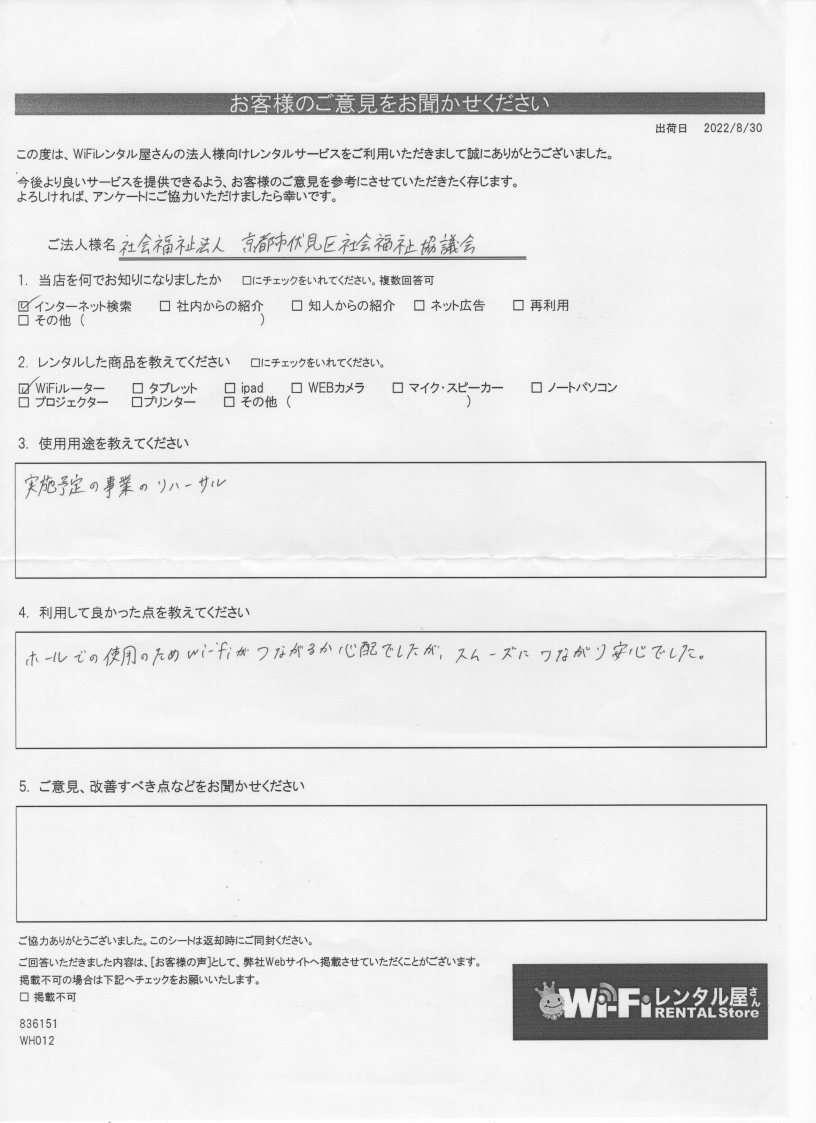 お客様のご意見をお聞かせください
出荷日 2022/8/30
この度は、WiFiレンタル屋さんの法人様向けレンタルサービスをご利用いただきまして誠にありがとうございました。
今後より良いサービスを提供できるよう、お客様のご意見を参考にさせていただきたく存じます。
よろしければ、アンケートにご協力いただけましたら幸いです。
ご法人様名 社会福祉法人 京都市伏見区社会福祉協議会
1. 当店を何でお知りになりましたか □にチェックをいれてください。複数回答可
☑ インターネット検索 □ 社内からの紹介 □ 知人からの紹介 □ ネット広告 □ 再利用
□ その他 ( )
2. レンタルした商品を教えてください □にチェックをいれてください。
☑ WiFiルーター □ タブレット □ ipad □ WEBカメラ □ マイク・スピーカー □ ノートパソコン
□ プロジェクター □プリンター □ その他 ( )
3. 使用用途を教えてください
実施予定の事業のリハーサル
4. 利用して良かった点を教えてください
ホールでの使用のためwi-fiがつながるか心配でしたが、スムーズにつながり安心でした。
5. ご意見、改善すべき点などをお聞かせください
ご協力ありがとうございました。このシートは返却時にご同封ください。
ご回答いただきました内容は、[お客様の声]として、弊社Webサイトへ掲載させていただくことがございます。
掲載不可の場合は下記へチェックをお願いいたします。
□ 掲載不可
836151
WH012
Wi-Fiレンタル屋さん
RENTAL Store